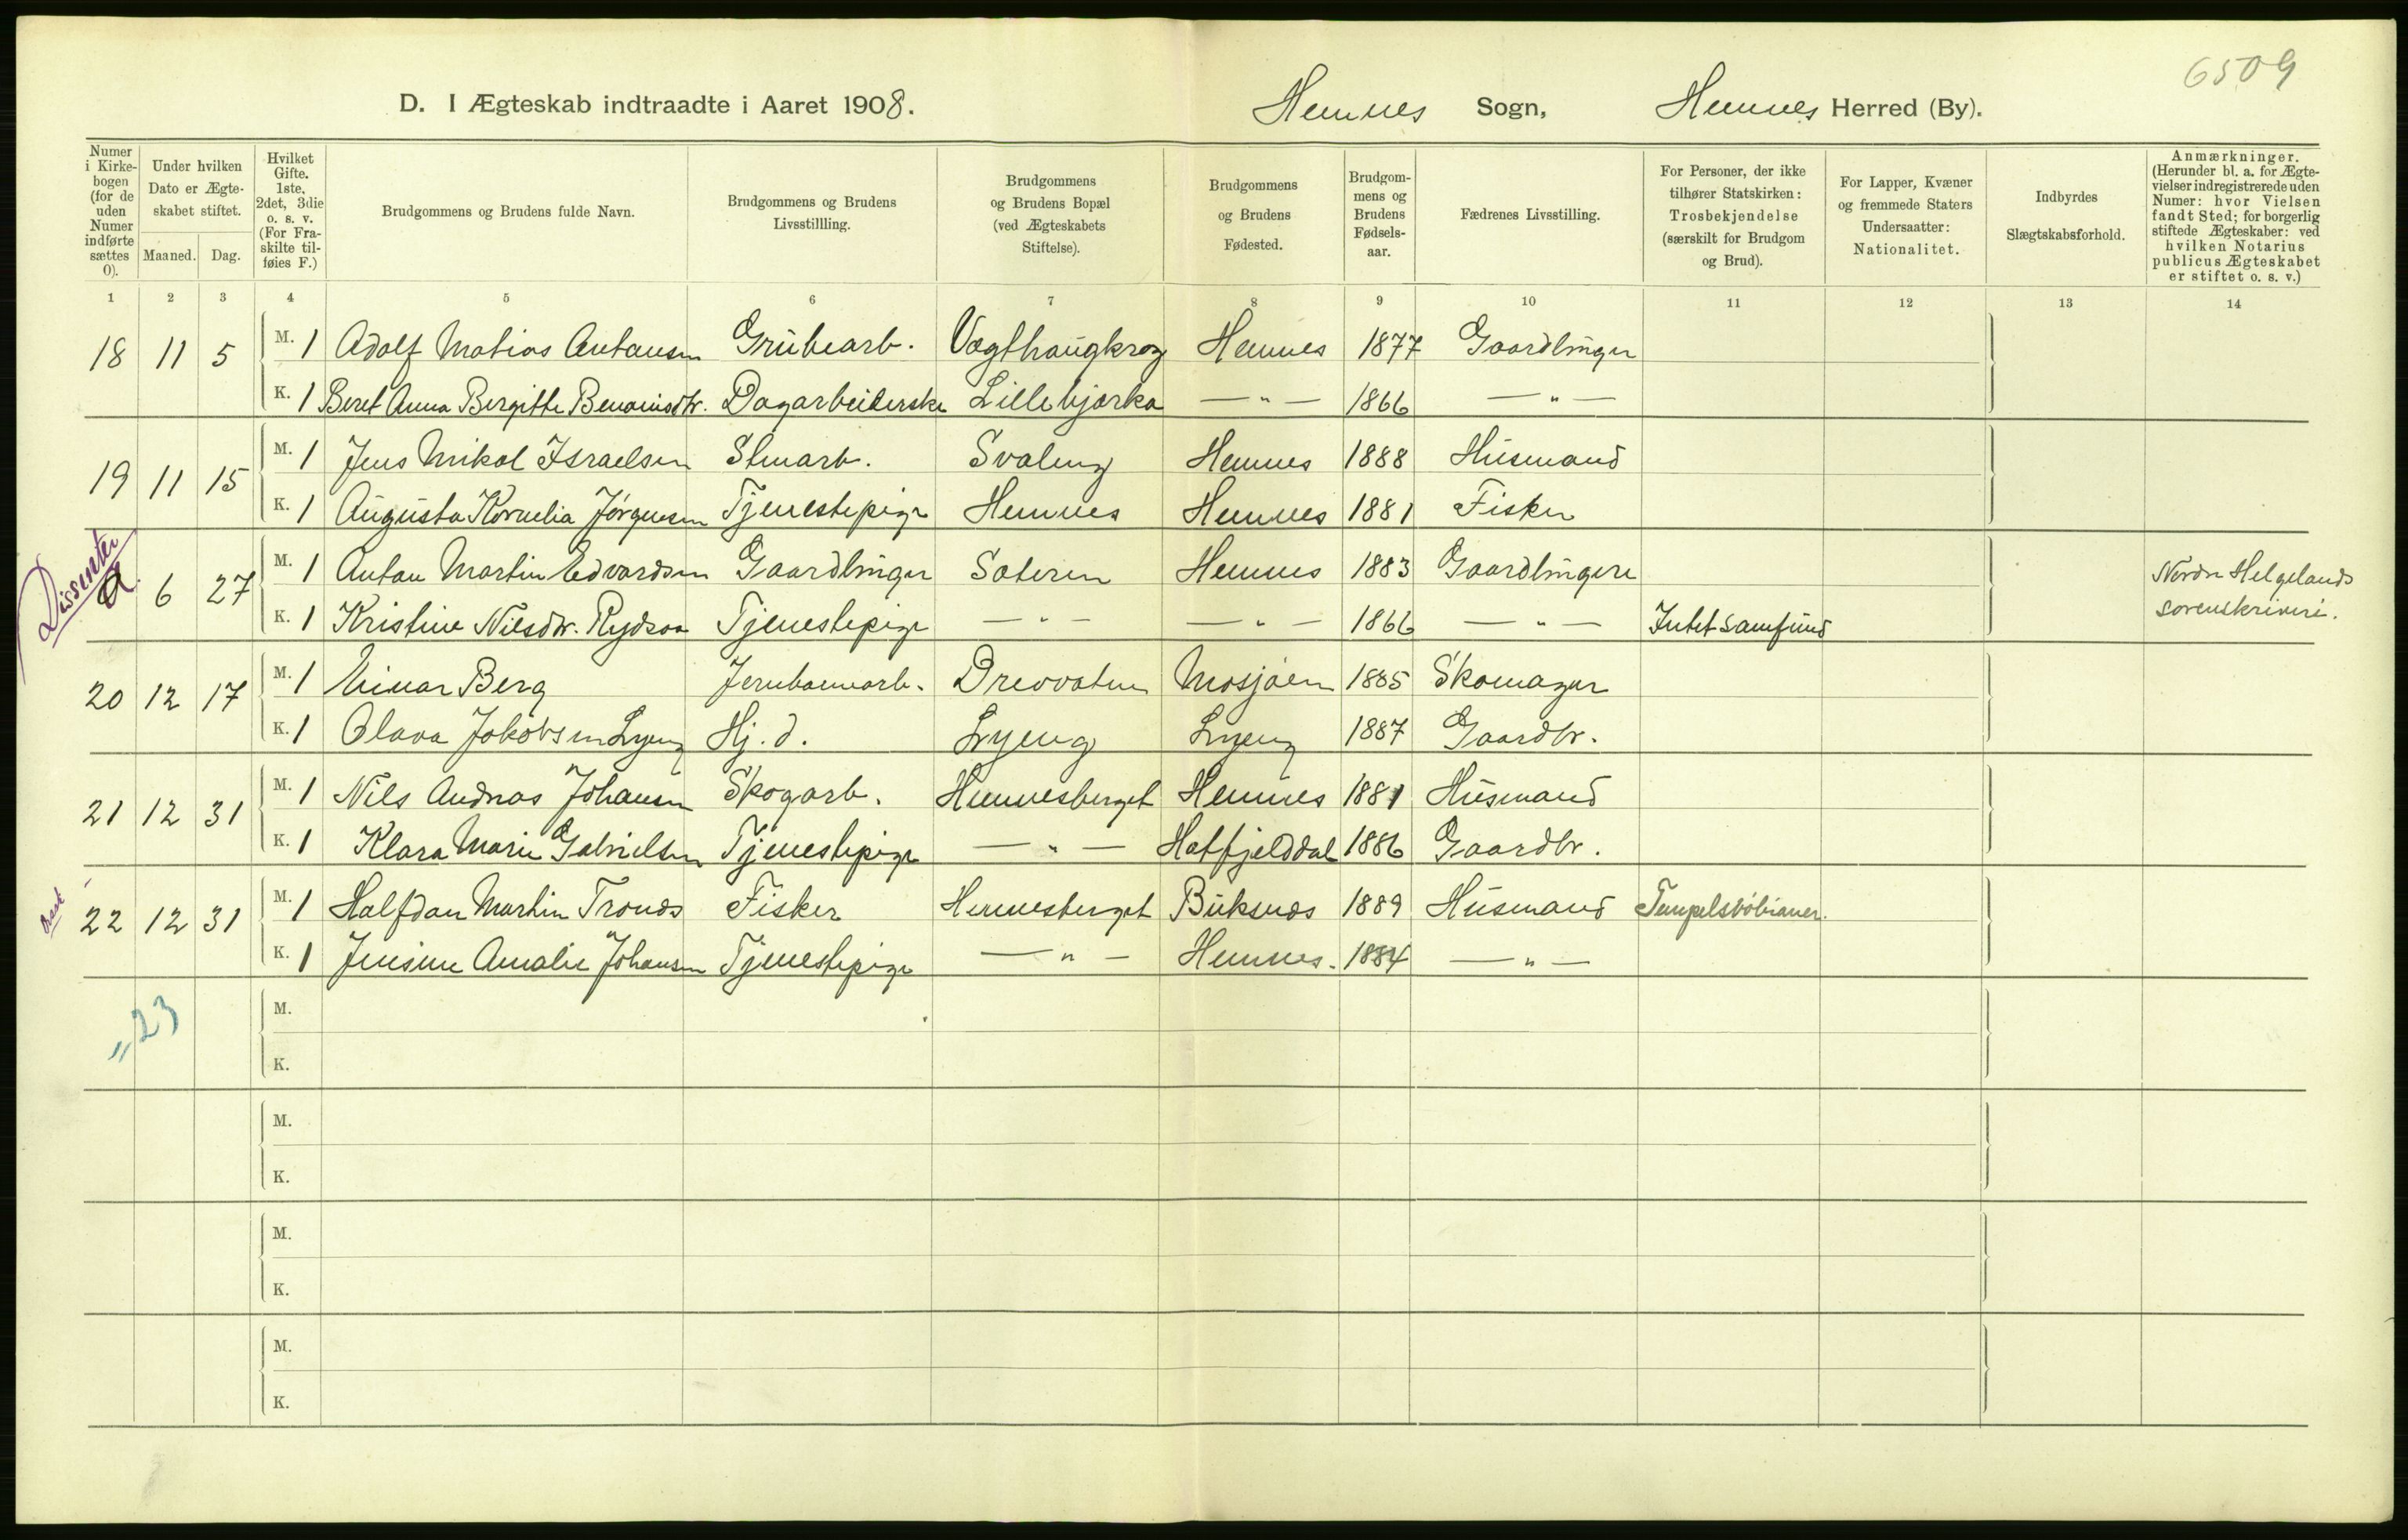 6509
D. I Ægteskab indtraadte i Aaret 1908. Hemnes Sogn, Hemnes Herred (By).
Numer i Kirkebogen (for de uden Numer indførte sættes 0).
Under hvilken Dato er Ægteskabet stiftet.
Maaned. Dag.
Hvilket Gifte. 1ste, 2det, 3die o. s. v. (For Fraskilte tilføies F.)
Brudgommens og Brudens fulde Navn.
Brudgommens og Brudens Livsstillling.
Brudgommens og Brudens Bopæl (ved Ægteskabets Stiftelse).
Brudgommens og Brudens Fødested.
Brudgommens og Brudens Fødselsaar.
Fædrenes Livsstilling.
For Personer, der ikke tilhører Statskirken: Trosbekjendelse (særskilt for Brudgom og Brud).
For Lapper, Kvæner og fremmede Staters Undersaatter: Nationalitet.
Indbyrdes Slægtskabsforhold.
Anmærkninger. (Herunder bl. a. for Ægtevielser indregistrerede uden Numer: hvor Vielsen fandt Sted; for borgerlig stiftede Ægteskaber: ved hvilken Notarius publicus Ægteskabet er stiftet o. s. v.)
1 2 3 4 5 6 7 8 9 10 11 12 13 14
18 11 5 M. 1 Adolf Matias Antonsen Grubearb. Vagthaugkrog Hemnes 1877 Gaardbruger
K. 1 Beret Anna Bergitte Benoniusdtr. Dagarbeiderske Lillebjerka — " — 1866 — " —
19 11 15 M. 1 Jens Mikal Israelsen Stenarb. Svaleng Hemnes 1888 Husmand
K. 1 Augusta Kornelia Jørgensen Tjenestepige Hemnes Hemnes 1881 Fisker
Dissenter
6 27 M. 1 Anton Martin Edvardsen Gaardbruger Sæteren Hemnes 1883 Gaardbrugere
K. 1 Kristine Nilsdtr. Rydsaa Tjenestepige — " — — " — 1866 — " — Intet samfund
Nordre Helgelands sorenskriveri.
20 12 17 M. 1 Einar Berg Jernbanearb. Drevvatne Mosjøen 1885 Skomager
K. 1 Olava Jakobsen Lyeng Hj. d. Lyeng Lyeng 1887 Gaardbr.
21 12 31 M. 1 Nils Andreas Johansen Skogarb. Hemnesberget Hemnes 1881 Husmand
K. 1 Klara Marie Gabrielsen Tjenestepige — " — Hatfjelddal 1886 Gaardbr.
22 12 31 M. 1 Halfdan Martin Tronds Fisker Hemnesberget Buksnes 1889 Husmand
K. 1 Jensine Amalie Johansen Tjenestepige — " — Hemnes. 1884 — " —
" 23
M.
K.
M.
K.
M.
K.
M.
K.